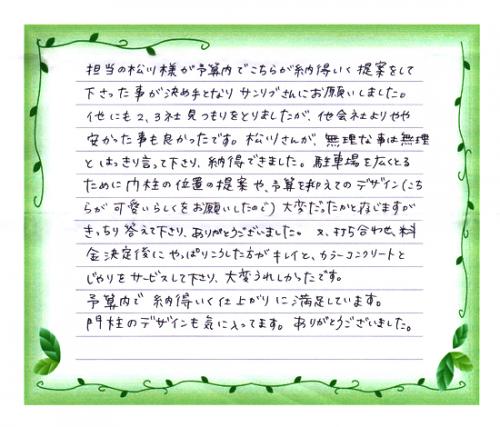 担当の松川様が予算内でこちらが納得いく提案をして
下さった事が決め手となり サンリブさんにお願いしました。
他にも2、3社見つもりをとりましたが、他会社よりやや
安かった事も良かったです。松川さんが、無理な事は無理
とはっきり言って下さり、納得できました。駐車場を広くとる
ために門柱の位置の提案や、予算を抑えてのデザイン(こち
らが可愛いらしくをお願いしたので)大変だったかと存じますが
きっちり答えて下さり、ありがとうございました。又、打ち合わせ、料
金決定後にやっぱりこうした方がキレイと、カラーコンクリートと
じゃりをサービスして下さり、大変うれしかったです。
予算内で 納得いく仕上がりにご満足しています。
門柱のデザインも気に入ってます。ありがとうございました。